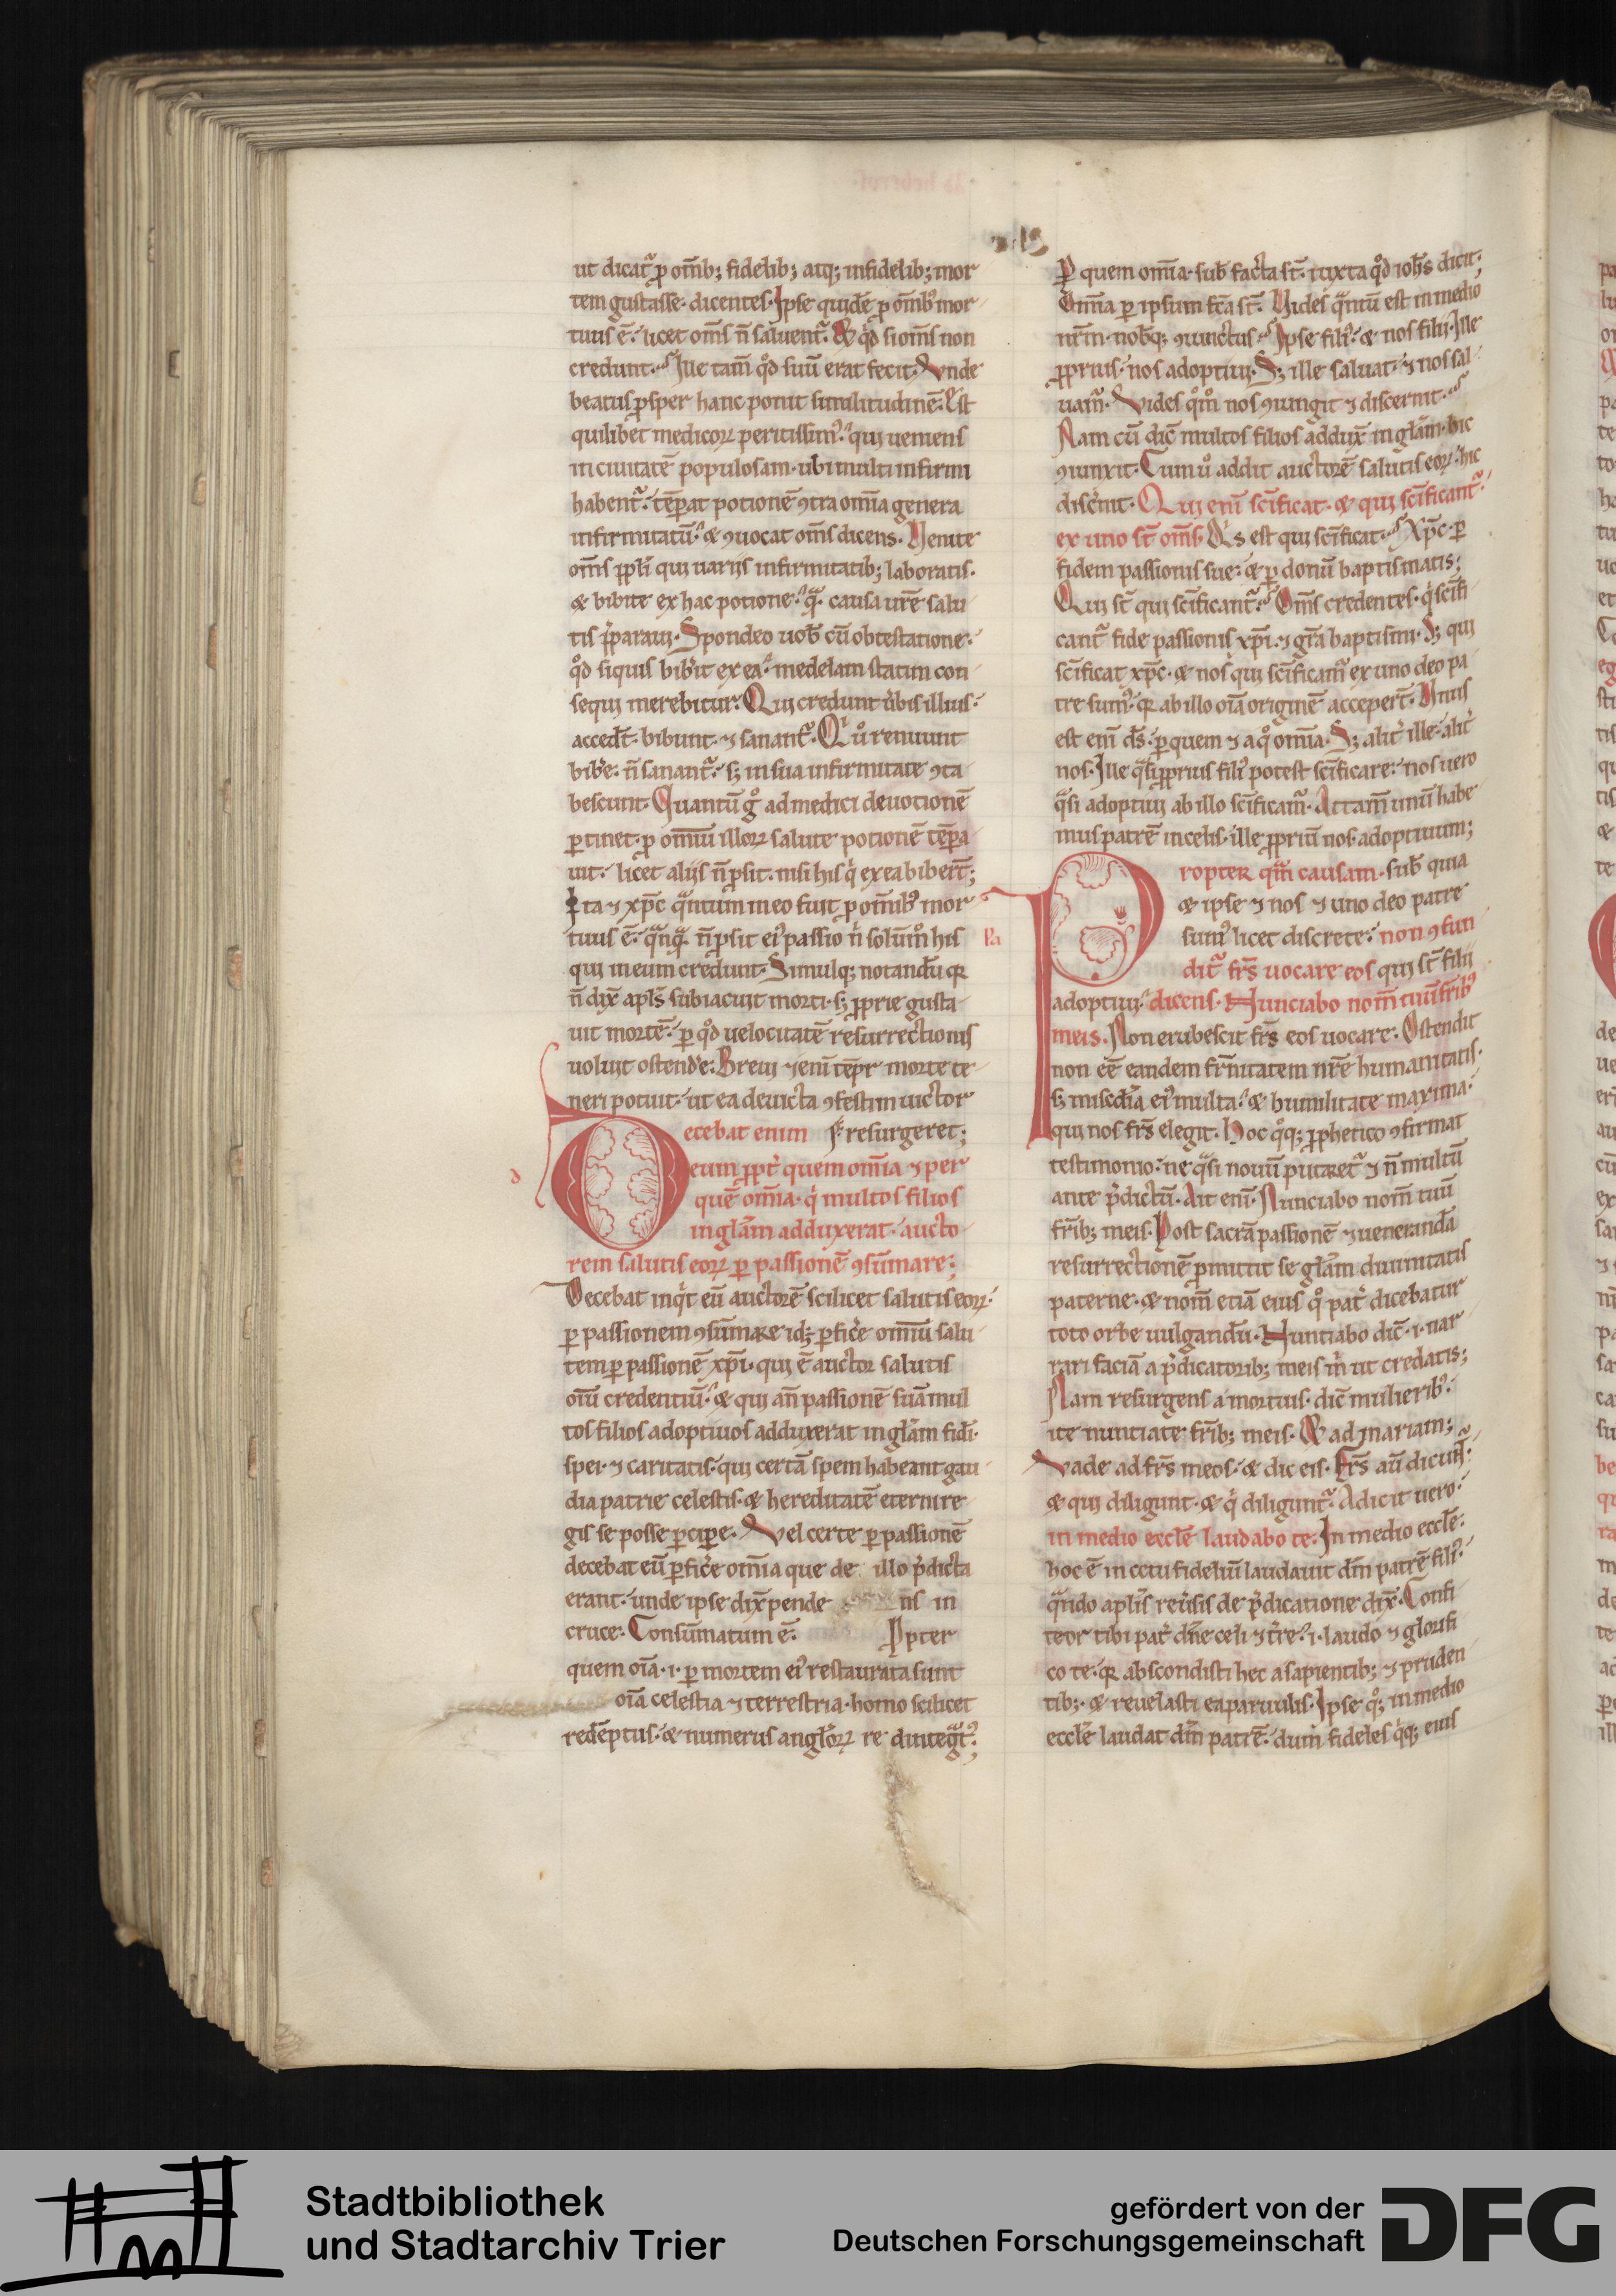 ut dicat᷑ ꝓ om̅ib; fidelib; atq; infidelib; mor
tem gustasse. dicentes. Ipse quidē ꝓ om̅ib; mor
tuus ē. licet om̅s n̅ saluent᷑. & qd̕ si om̅s non
credunt. Ille tam̅ qd̕ suū erat fecit. Vnde
beatus ꝓsper hanc ponit similitudinē. Est
quilibet medicoꝝ peritissim᷒. qui ueniens
in ciuitatē populosam. ubi multi infirmi
habent᷑. tēꝑat potionē ꝯtra om̅ia genera
infirmitatū. & ꝯuocat om̅s dicens. Venite
om̅s pp̅li qui uariis infirmitatib; laboratis.
& bibite ex hac potione. qͣ causa ur̅e salu
tis p̕paraui. Spondeo uob̅ cū obtestatione.
qd̕ siquis bib̕it ex ea. medelam statim con
sequi merebitur. Qui credunt u̕bis illius.
accedt̅. bibunt. ⁊ sanant᷑. Qͥ u̕ renuunt
bib̕e. n̅ sanant᷑. s; in sua infirmitate ꝯta
bescunt. Quantū gͦ ad medici deuotionē
ꝑtinet. ꝓ om̅iū illoꝝ salute potionē tēꝑa
uit. licet aliis n̅ ꝓsit. nisi his qͥ ex ea bibert̅;
Ita ⁊ xp̅c qͣntum in eo fuit ꝓ om̅ib᷒ mor
tuus ē. qͣnqͣ n̅ ꝓsit ei᷒ passio n̕ solūm̊ his
qui in eum credunt. Simulq; notandū qꝛ
n̅ dix̅ apl̅s subiacuit morti. s; ꝓprie gusta
uit mortē. ꝑ qd̕ uelocitatē resurrectionis
uoluit ostende. Breui ⁊eni̅ tēpr̅ morte te
neri potuit. ut ea deuicta ꝯfestim uictor
ecebat enim resurgeret;
eum ꝓpt̕ quem om̅ia ⁊ per
quē om̅ia. qͥ multos filios
in glam̅ adduxerat. aucto
rem salutis eoꝝ ꝑ passionē ꝯsūmare;
Decebat inqͥt eū auctorē scilicet salutis eoꝝ.
ꝑ passionem ꝯsūmare id; ꝑfic̕e om̅iū salu
tem ꝑ passionē xp̅i. qui ē auctor salutis
oiū̅ credentiū. & qui an̅ passionē suā mul
tos filios adoptiuos adduxerat in glam̅ fid̅i.
spei ⁊ caritatis. qui certā spem habeant gau
dia patrie celestis. & hereditatē eterni re
gis se posse ꝑciꝑe. Vel certe ꝑ passionē
decebat eū ꝑfic̕e om̅ia que de illo p̕dicta
erant. unde ipse dix̅ pende ns in
cruce. Consūmatum ē. Ppter
quem oi̅a. i. ꝑ mortem ei᷒ restaurata sunt
oi̅a celestia ⁊ terrestria. homo scilicet
redēptus. & numerus angl̅oꝝ re dintegͣt᷒;
ꝑ quem om̅ia. sub̅ facta st̅. iuxta qd̕ ioh̅s dicit;
Om̅ia ꝑ ipsum fc̅a st̅. Vides qͣntū est in medio
nr̅m. nob̅q; ꝯiunctus. Ipse fili᷒. & nos filii. Ille
ꝓprius. nos adoptiui. S; ille saluat. ⁊ nos sal
uam᷑. Vides qm̊ nos ꝯiungit ⁊ discernit.
Nam cū dic̅ multos filios addux̅ in glam̅. hic
ꝯiunxit. Cum u̕ addit auctorē salutis eoꝝ. hic
disc̕nit. Qui eni̅ scīficat. & qui scīficant᷑.
ex uno st̅ om̅s. Qͥs est qui scīficat. Xp̅c. ꝑ
fidem passionis sue. & ꝑ donū baptismatis;
Qui st̅ qui scīficant᷑. Om̅s credentes. qͥ scīfi
cant᷑ fide passionis xp̅i. ⁊ gr̅a baptismi. S; qui
scīficat xp̅c. & nos qui scīficam᷑ ex uno deo pa
tre sum᷒. qꝛ ab illo oi̅a originē accepert̅. Vnus
est eni̅ ds̅. ꝑ quem ⁊ a qͦ om̅ia. S; alit̕ ille. alit̕
nos. Ille qͣsi ꝓprius fili᷒ potest scīficare. nos uero
qͣsi adoptiui ab illo scīficam᷑. Attam̅ unū habe
mus patrē in celis. ille ꝓpriū nos adoptiuum;
ropter qͣm causam. sub̅ quia
& ipse ⁊ nos ⁊ uno deo patre
sum᷒ licet discrete. non ꝯfun
dit᷑ frs̅ uocare eos qui st̅ filii
adoptiui. dicens. Nunciabo nom̅ tuū frib̅᷒
meis. Non erubescit frs̅ eos uocare. Ostendit
non eē eandem frn̅itatem nr̅e humanitatis.
s; misc̕dia ei᷒ multa. & humilitate maxima.
qui nos frs̅ elegit. Hoc qͦq; ꝓphetico ꝯfirmat
testimonio. ne qͣsi nouū putaret᷑ ⁊ n̅ multū
ante p̕dictū. Ait eni̅. Nunciabo nom̅ tuū
frib̅; meis. Post sacrā passionē ⁊ uenerandā
resurrectionē ꝓmittit se glam̅ diuinitatis
paterne. & nom̅ etiā eius qͦ pat̕ dicebatur
toto orbe uulgandū. Nuntiabo dic̅. i. nar
rari faciā a p̕dicatorib; meis m̕ ut credatis;
Nam resurgens a mortuis. dic̅ mulierib᷒.
ite nuntiate frib̅; meis. & ad mariam;
Vade ad frs̅ meos. & dic eis. Frs̅ aū dicunt᷑.
& qui diligunt. & qͥ diligunt᷑. Adicit uero.
in medio eccle̅ laudabo te. In medio eccle̅.
hoc ē in cetu fideliū laudauit dm̅ patrē fili᷒.
qͣndo aplis̅ reu̕sis de p̕dicatione dix̅. Confi
teor tibi pat̕ dn̅e celi ⁊ t̕re. i. laudo ⁊ glorifi
co te. qꝛ abscondisti hec a sapientib; ⁊ pruden
tib;. & reuelasti ea paruulis. Ipse qͦ; in medio
eccle̅ laudat dm̅ patrē. dum fideles qͥq; eius
Stadtbibliothek
und Stadtarchiv Trier
gefördert von der
Deutschen Forschungsgemeinschaft
DFG